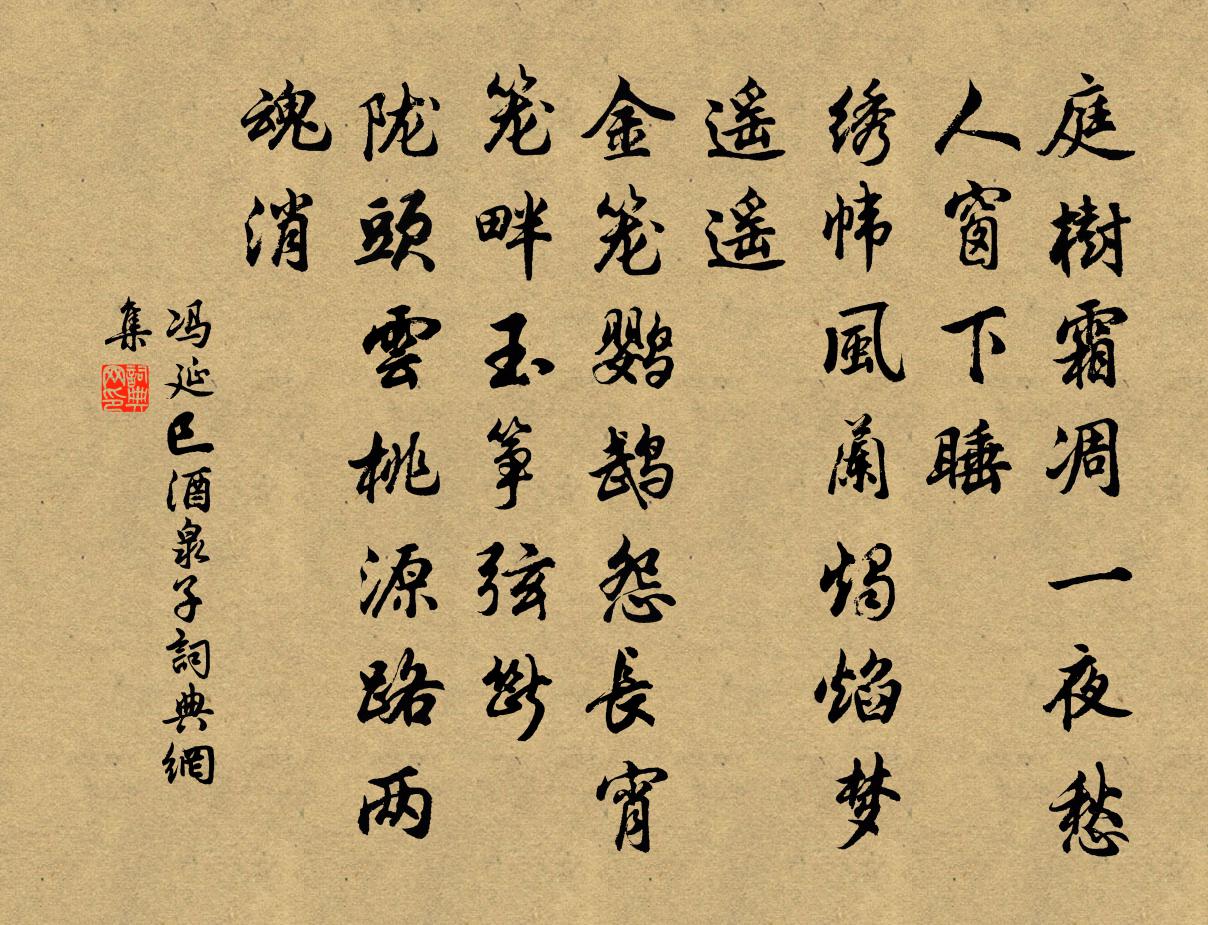 庭樹霜凋一夜愁
人窗下睡
绣帏風蘭焗焰梦
遥遥
金笼鹦鹉怨長宵
笼畔玉筝弦斷
陇頭雲桃源路两
魂消
冯延巳酒泉子詞典網
集
詞典網印